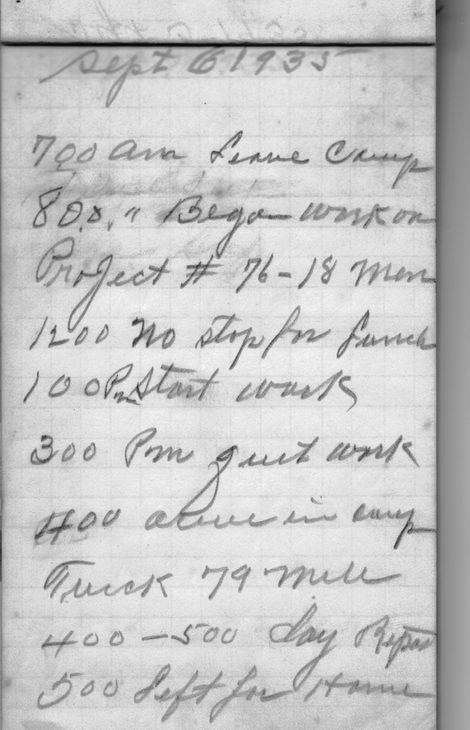 Sept 6 1935
700 am Leave Camp
800 " Began work on
Project # 76 - 18 men
1200 No stop for Lunch
100 Pm Start work
300 Pm quit work
400 arive in camp
Truck 79 mile
400 - 500 day Repor
500 Left for Home